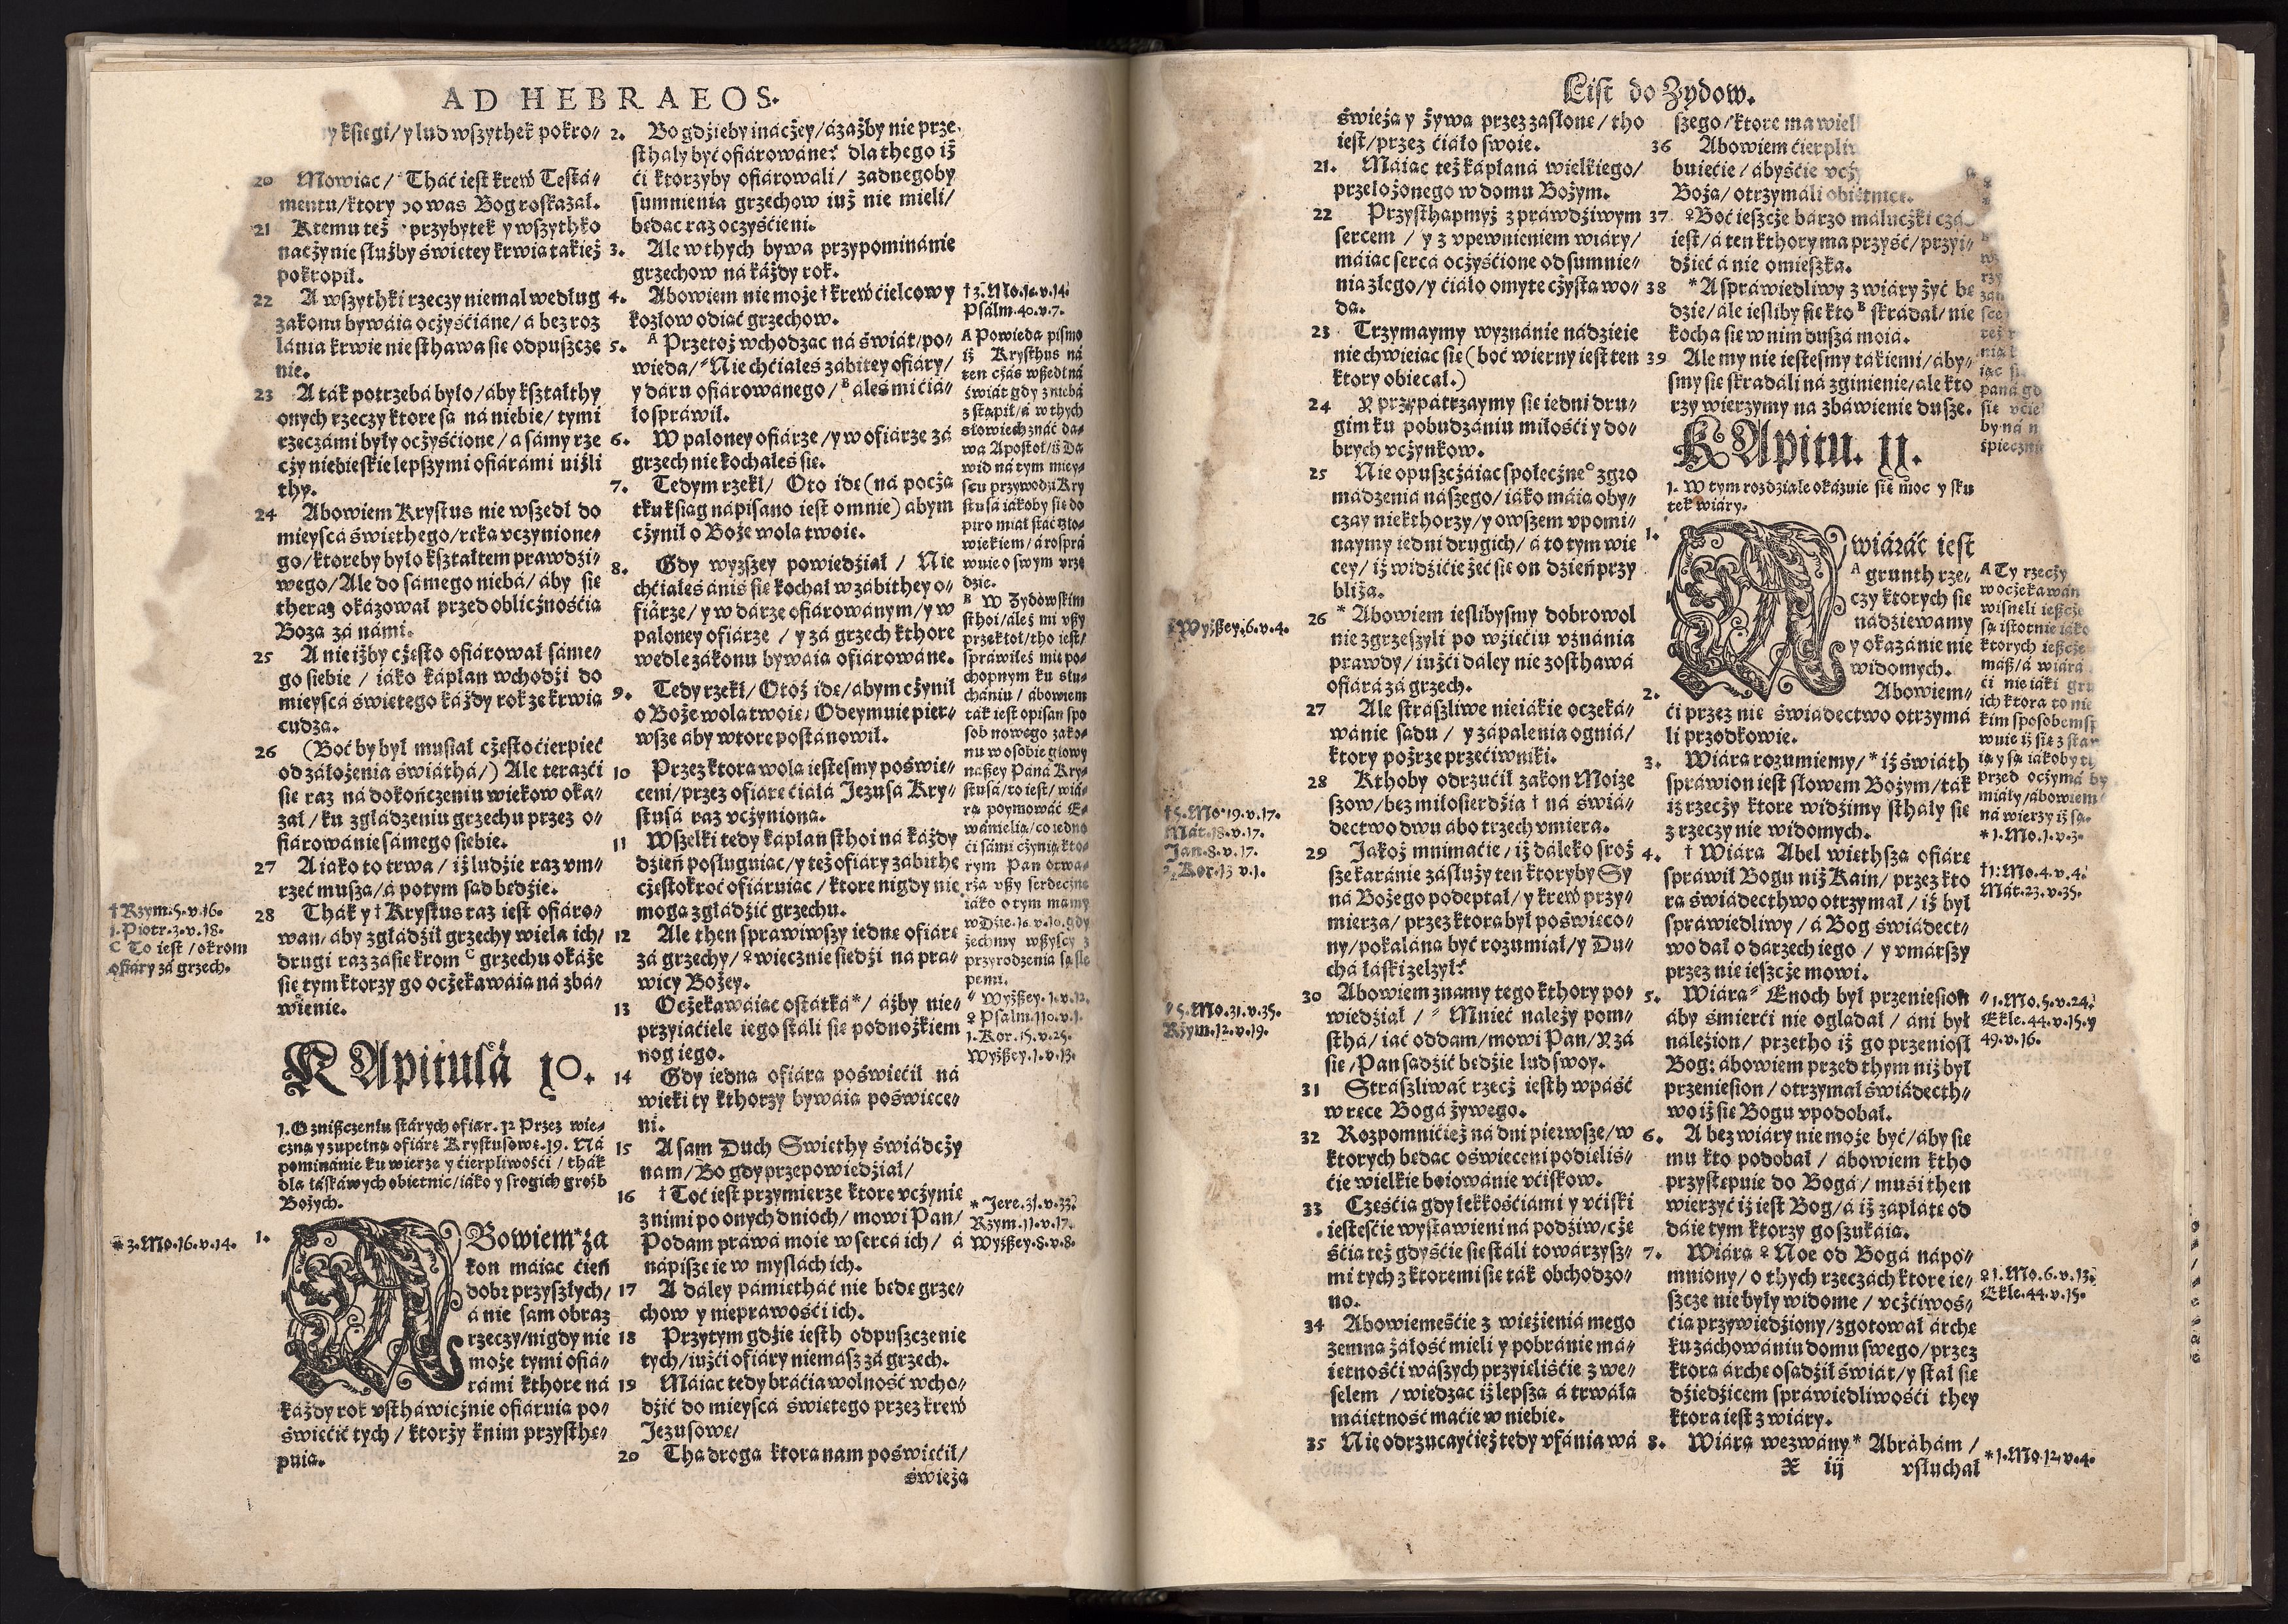 AD HEBRAEOS.
y ksiegi/ y lud wszythek pokro⸗
20 Mowiac/ Tháć iest krew Testá⸗
mentu/ktory do was Bog roskazał.
21 K temu też przybytek y wszythko
naczynie służby świętey krwia takież
pokropił.
22 A wszythki rzeczy niemal według
zakonu bywáia oczyśćiáne/ á bez roz
lánia krwie nie sthawa sie odpuszcze
nie.
23 A ták potrzebá było/ áby kształthy
onych rzeczy ktore są ná niebie/ tymi
rzeczámi były oczyśćione/ a sámy rze
czy niebieskie lepszymi ofiárámi niżli
thy.
24 Abowiem Krystus nie wszedł do
mieyscá święthego/ ręką vczynione⸗
go/ ktoreby było kształtem prawdzi⸗
wego/ Ale do sámego niebá/ áby sie
theraz okázował przed oblicznośćia
Boża zá námi.
25 A nie iżby często ofiárował sáme⸗
go siebie / iáko kápłan wchodźi do
mieyscá świętego káżdy rok ze krwia
cudza.
26 (Boć by był musiał często ćierpieć
od záłożenia świáthá/) Ale terazći
sie raz ná dokończeniu wiekow oka⸗
zał/ ku zgładzeniu grzechu przez o⸗
fiárowánie sámego siebie.
27 A iáko to trwa / iż ludźie raz vm⸗
rzeć musza/ á potym sad będźie.
28 Thák y † Krystus raz iest ofiáro⸗
wan/ áby zgłádźił grzechy wiela ich/
drugi raz zásie krom C grzechu okáże
sie tym ktorzy go oczekawáia ná zbá⸗
wienie.
† Rzym.5.v.16.
1.Piotr.3.v.18.
C To iest / okrom
ofiáry zá grzech.
KApitulá 10.
1. O zniszczeniu stárych ofiar. 12 Przez wie⸗
czna y zupełna ofiárę Krystusowę. 19. Ná
pominánie ku wierze y ćierpliwośći / thák
dla łáskáwych obietnic/ iáko y srogich groźb
Bożych.
* 3.Mo.16.v.14.
1. ABowiem * za
kon máiac ćień
dobr przyszłych/
á nie sam obraz
rzeczy/ nigdy nie
może tymi ofiá⸗
rámi kthore ná
káżdy rok vstháwicznie ofiáruia po⸗
świećić tych / ktorży knim przysthe⸗
puia.
2. Bo gdźieby ináczey/ ázażby nie prze⸗
sthaly być ofiárowáne? dla thego iż
ći ktorzyby ofiárowali / zadnegoby
sumnienia grzechow iuż nie mieli/
bedac raz oczyśćieni.
3. Ale w thych bywa przypominánie
grzechow ná káżdy rok.
4. Abowiem nie może † krew ćielcow y
kozłow odiąć grzechow.
5. A Przetoż wchodzac ná świát/ po⸗
wieda/ ⸗ Nie chćiałeś zábitey ofiáry/
y dáru ofiárowánego/ B áleś mi ćiá⸗
ło spráwił.
6. W paloney ofiárze / y w ofiárze zá
grzech nie kochałeś sie.
7. Tedym rzekł/ Oto idę (ná począ
tku ksiąg nápisano iest o mnie) abym
czynił o Boże wola twoię.
8. Gdy wyższey powiedźiał / Nie
chćiałeś ániś sie kochał w zábithey o⸗
fiárze/ y w dárze ofiárowánym/ y w
paloney ofiárze / y zá grzech kthore
wedle zákonu bywáia ofiárowáne.
9. Tedy rzekł/ Otoż idę/ abym czynił
o Boże wola twoię/ Odeymuie pier⸗
wsze aby wtore postánowił.
10 Przez ktora wola iestesmy poświę⸗
ceni/ przez ofiárę ćiáłá Jezusa Kry⸗
stusá raz vczyniona.
11 Wszelki tedy kápłan sthoi ná káżdy
dźień posługuiac/ y też ofiáry zábithe
częstokroć ofiáruiac / ktore nigdy nie
moga zgłádźić grzechu.
12 Ale then spráwiwszy iedne ofiárę
zá grzechy/ ♀ wiecznie siedźi na pra⸗
wicy Bożey.
13 Oczekawáiac ostátká */ áżby nie⸗
przyiaćiele iego stáli sie podnożkiem
nog iego.
14 Gdy iedna ofiára poświećił ná
wieki ty kthorzy bywáia poświece⸗
ni.
15 A sam Duch Swiethy świádczy
nam/ Bo gdy przepowiedźiał/
16 † Toć iest przymierze ktore vczynię
z nimi po onych dnioch/ mowi Pan/
Podam práwá moie w sercá ich/ á
nápiszę ie w myslách ich.
17 A dáley pámiętháć nie będę grze⸗
chow y nieprawośći ich.
18 Przytym gdźie iesth odpuszczenie
tych/ iużći ofiáry niemász zá grzech.
19 Máiac tedy bráćia wolność wcho⸗
dźić do mieyscá świętego przez krew
Jezusowę/
20 Tha droga ktora nam poświećił/
świeża
† 3.Mo.16.v.14.
Psálm.40.v.7.
A Powieda pismo
iż Krysthus ná
ten czás wszedł ná
świát gdy z niebá
zstąpił/ á w thych
słowiech znáć dá⸗
wa Apostoł/ iż Da
wid ná tym miey⸗
scu przywodźi Kry
stusá iákoby sie do
piro miał stáć czło⸗
wiekiem/ á rospra
wuie o swym vrzę
dźie.
B W Zydowskim
sthoi/ áleś mi vszy
przekłoł/ tho iest/
spráwiłeś mie po⸗
chopnym ku słu⸗
chániu / ábowiem
ták iest opisan spo
sob nowego záko⸗
nu w osobie głowy
nászey Páná Kry⸗
stusá/ to iest/ wiá⸗
rą poymowáć E⸗
wánielią/ co iedno
ći sámi czynią kto⸗
rym Pan otwa⸗
rza vszy serdeczne
iáko o tym mamy
w Dzie.16.v.10. gdy
żechmy wszyscy z
przyrodzenia są sle
pemi.
⸗ Wyższey.1.v.12.
♀ Psálm.110.v.1.
1.Kor.15.v.25.
Wyższey.1.v.13.
* Jere.31.v.33.
Rzym.11.v.17.
Wyższey.8.v.8.
List do Zydow.
świeża y żywa przez zasłonę / tho
iest/ przez ćiáło swoie.
21. Máiac też kápłaná wielkiego/
przełożonego w domu Bożym.
22 Przysthąpmyż z práwdźiwym
sercem / y z vpewnieniem wiáry/
máiac sercá oczyśćione od sumnie⸗
nia złego/ y ćiáło omyte czysta wo⸗
da.
23 Trzymaymy wyznánie nádźieie
nie chwieiac sie (boć wierny iest ten
ktory obiecał.)
24 Y przypátrzaymy sie iedni dru⸗
gim ku pobudzániu miłośći y do⸗
brych vczynkow.
25 Nie opuszczáiac społeczne° zgro
mádzenia nászego/ iáko máia oby⸗
czay niekthorzy/ y owszem vpomi⸗
naymy iedni drugich/ á to tym wie
cey/ iż widźićie żeć sie on dźień przy
bliża.
* Wyższey.6.v.4.
26 * Abowiem iesliбyśmy dobrowol
nie zgrzeszyli po wźięćiu vznánia
prawdy/ iużći dáley nie zosthawá
ofiárá zá grzech.
27 Ale strászliwe nieiákie oczeká⸗
wánie sadu / y zápalenia ogniá/
ktory pożrze przećiwniki.
28 Kthoby odrzućił zakon Moize
szow/ bez miłosierdźia † ná świá⸗
dectwo dwu ábo trzech vmiera.
† 5.Mo.19.v.17.
Mát.18.v.17.
Jan.8.v.17.
2.Kor.13 v.1.
29 Jákoż mnimaćie/ iż dáleko sroż
sze karánie zásłuży ten ktoryby Sy
ná Bożego podeptał/ y krew przy⸗
mierza/ przez ktora był poświęco⸗
ny/ pokaláną być rozumiał/ y Du⸗
chá łáski zelżył?
30 Abowiem znamy tego kthory po⸗
wiedźiał / ⸗ Mnieć należy pom⸗
sthá/ iać oddam/ mowi Pan/ Y zá
sie/ Pan sadźić będźie lud swoy.
⸗ 5.Mo.31.v.35.
Rzym.12.v.19.
31 Strászliwać rzecz iesth wpáść
w ręce Bogá żywego.
32 Rozpomnićież ná dni pierwsze/ w
ktorych będac oświeceni podieliś⸗
ćie wielkie boiowánie vćiskow.
33 Częśćia gdy lekkośćiámi y vćiski
iesteśćie wystáwieni ná podźiw/ czę
śćia też gdyśćie sie stáli towárzysz⸗
mi tych z ktoremi sie ták obchodzo⸗
no.
34 Abowiemeśćie z więźienia mego
zemna żáłość mieli y pobránie má⸗
iętnośći wászych przyieliśćie z we⸗
selem / wiedzac iż lepszą á trwáłą
máiętność maćie w niebie.
35 Nie odrzucayćież tedy vfánia wá
szego/ ktore ma wiel
36 Abowiem ćierpli
buiećie / ábyśćie vcz
Boża/ otrzymáli obietnicę.
37 ♀ Boć ieszcze bárzo máluczki czá
iest/ á ten kthory ma przyść/ przyi⸗
dźieć á nie omieszka.
38 * A spráwiedliwy z wiáry żyć bę
dźie/ ále iesliby sie kto B skrádał/ nie
kocha sie w nim duszá moiá.
39 Ale my nie iestesmy tákiemi/ áby⸗
smy sie skradáli ná zginienie/ ale kto
rzy wierzymy na zbáwienie dusze.
KApitu. 11.
1. W tym rozdziale okázuie się moc y sku
tek wiáry.
1. A wiáráć iest
A grunth rze⸗
czy ktorych sie
nádźiewamy
y okazánie nie
widomych.
2. Abowiem⸗
ći przez nie świádectwo otrzymá
li przodkowie.
3. Wiára rozumiemy/ * iż świáth
spráwion iest słowem Bożym/ ták
iż rzeczy ktore widźimy sthały sie
z rzeczy nie widomych.
4. † Wiára Abel więthsza ofiárę
spráwił Bogu niż Kain/ przez kto
ra świádecthwo otrzymał / iż był
spráwiedliwy / á Bog świádect⸗
wo dał o dárzech iego / y vmárszy
przez nie ieszcze mowi.
5. Wiára ⸗ Enoch był przeniesion
áby śmierći nie oglądał / áni był
náleźion/ przetho iż go przeniosł
Bog: ábowiem przed thym niż był
przeniesion / otrzymał świádecth⸗
wo iż sie Bogu vpodobał.
6. A bez wiáry nie może być/ áby sie
mu kto podobał / ábowiem ktho
przystępuie do Bogá/ muśi then
wierzyć iż iest Bog/ á iż zapłátę od
dáie tym ktorzy go szukáia.
7. Wiára ♀ Noe od Bogá nápo⸗
mniony/ o thych rzeczách ktore ie⸗
szcze nie były widome / vczćiwoś⸗
ćia przywiedźiony/ zgotował árchę
ku záchowániu domu swego/ przez
ktora árchę osądźił świát/ y stał sie
dźiedźicem spráwiedliwośći they
ktora iest z wiáry.
8. Wiára wezwány * Abráhám /
X iij vsłuchał
A Ty rzeczy
w oczekawán
wisneli ieszcze
są istotnie iáko
ktorych ieszcze
mász/ á wiára
ći nieiáki gru
ich ktora to nie
kim sposobem sp
wuie iż sie z stár
ią y są iákoby ti
przed oczymá by
miáły/ ábowiem
ná wierzy iż są.
* 1.Mo.1.v.3.
† 1.Mo.4.v.4.
Mát.23.v.35.
⸗ 1.Mo.5.v.24.
Ekle.44.v.15.y
49.v.16.
♀ 1.Mo.6.v.13.
Ekle.44.v.15.
* 1.Mo.12.v.4.